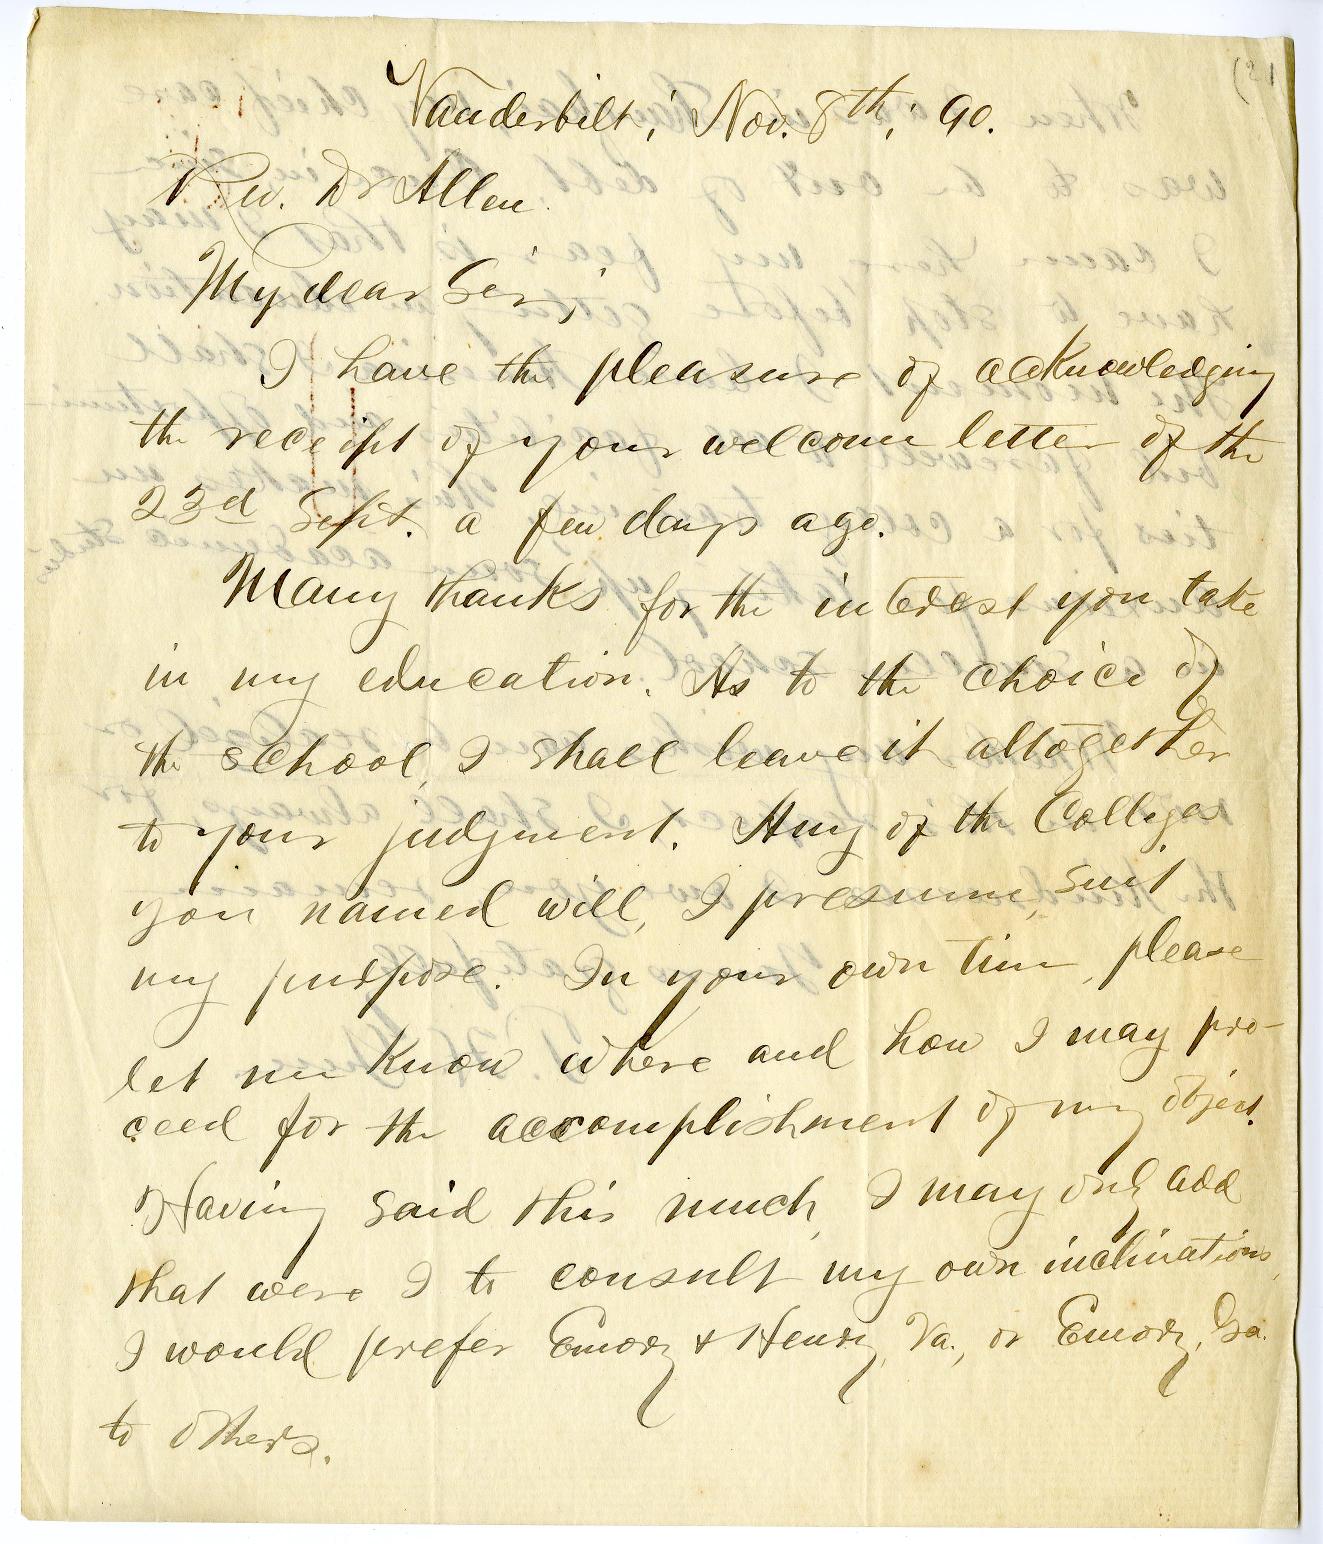 (2)
Vanderbilt; Nov. 8th; 90.
Rev. Dr Allen.
My dear Sir;
I have the pleasure of acknowledging
the receipt of your welcome letter of the
23d Sept. a few days ago.
Many thanks for the interest you take
in my education. As to the choice of
the school, I shall leave it altogether
to your judgment. Any of the Colleges
you named will, I presume, suit
my purpose. In your own time, please
let me know where and how I may pro-
ceed for the accomplishment of my object.
Having said this much, I may only add
that were I to consult my own inclinations,
I would prefer Emory & Henry, Va., or Emory, Ga.
to others.